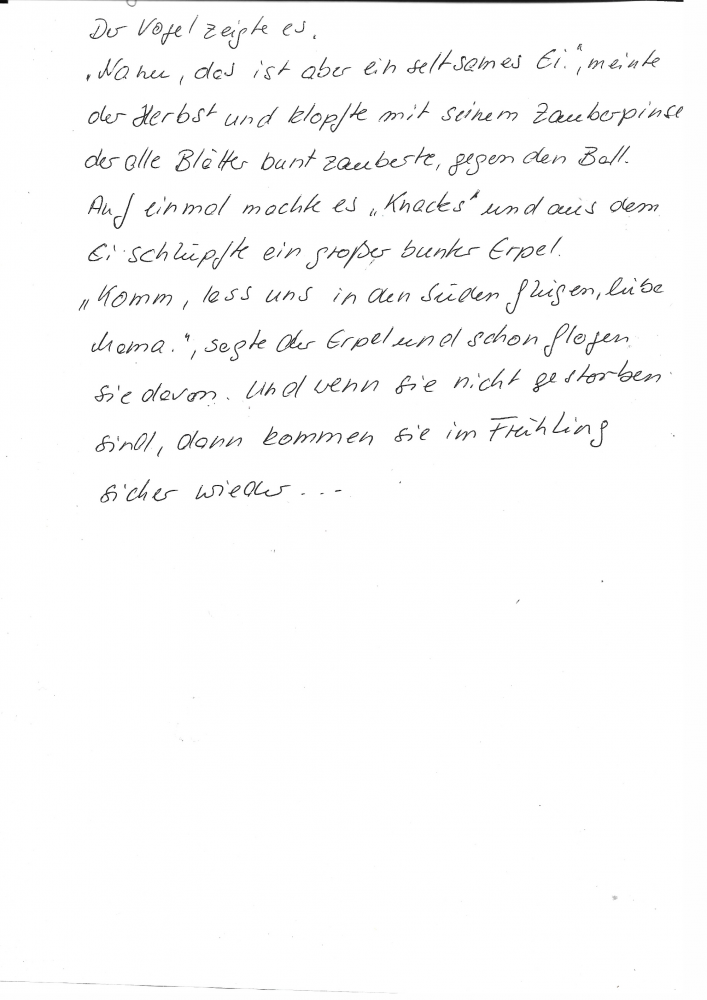 Der Vogel zeigte es.
„Nanu, das ist aber ein seltsames Ei.“, meinte
der Herbst und klopfte mit seinem Zauberpinse
der alle Blätter bunt zauberte, gegen den Ball.
Auf einmal machte es „Knacks“ und aus dem
Ei schlüpfte ein großer bunter Erpel.
„Komm, lass uns in den Süden fliegen, liebe
Mama.“, sagte der Erpel und schon flogen
sie davon. Und wenn sie nicht gestorben
sind, dann kommen sie im Frühling
sicher wieder...